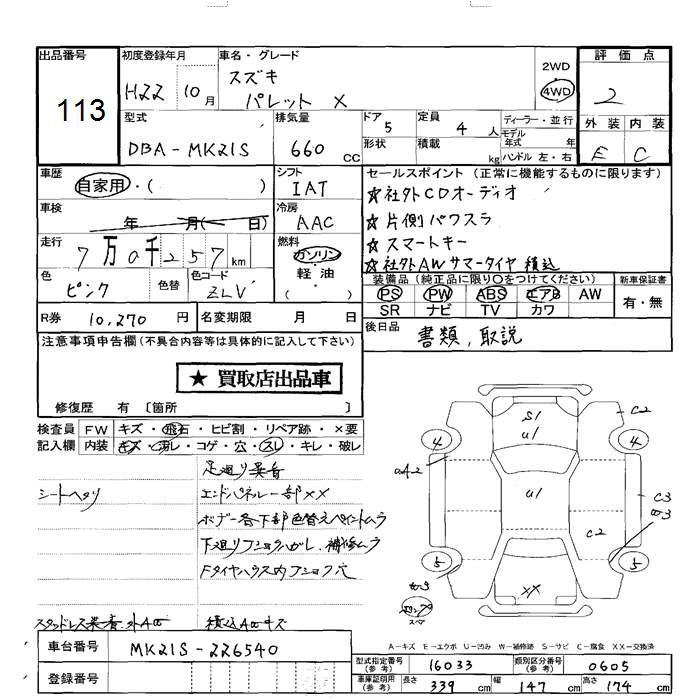 出品番号
113
初度登録年月
H22 10月
車名・グレード
スズキ
パレット X
2WD
4WD
評価点
2
外装 内装
E C
型式
DBA-MK21S
排気量
660 CC
ドア
5
定員
4 人
形状
積載
kg
ディーラー・並行
モデル年式 年
ハンドル 左・右
車歴
自家用・( )
シフト
IAT
セールスポイント (正常に機能するものに限ります)
☆社外CDオーディオ
☆片側パワスラ
☆スマートキー
☆社外AWサマータイヤ積込
車検
年 月( 日)
冷房
AAC
走行
7万0千257km
燃料
ガソリン
軽油
( )
色
ピンク
色替
色コード
ZLV
装備品 (純正品に限り○をつけてください)
PS PW ABS エアB AW
SR ナビ TV カワ
新車保証書
有・無
R券 10,270 円
名変期限 月 日
後日品
書類,取説
注意事項申告欄(不具合内容等は具体的に記入して下さい)
★ 買取店出品車
修復歴 有 〔箇所 〕
検査員記入欄
FW キズ・飛石・ヒビ割・リペア跡・×要
内装 キズ・汚レ・コゲ・穴・スレ・キレ・破レ
足廻り異音
シートヘタリ
エンドパネル一部××
ボデー各下部色替えペイントムラ
下廻りフショクハガレ、補修ムラ
Fタイヤハウス内フショク穴
積込AWキズ
S1
U1
C2
4
4
A4-2
U1
C3
W3
C2
5
5
XX
W3
スペア
車台番号
MK21S-226540
登録番号
A-キズ E-エクボ U-凹み W-補修跡 S-サビ C-腐食 XX-交換済
型式指定番号(参考) 16033
類別区分番号(参考) 0605
車庫証明用(参考) 長さ 339 cm 幅 147 cm 高さ 174 cm